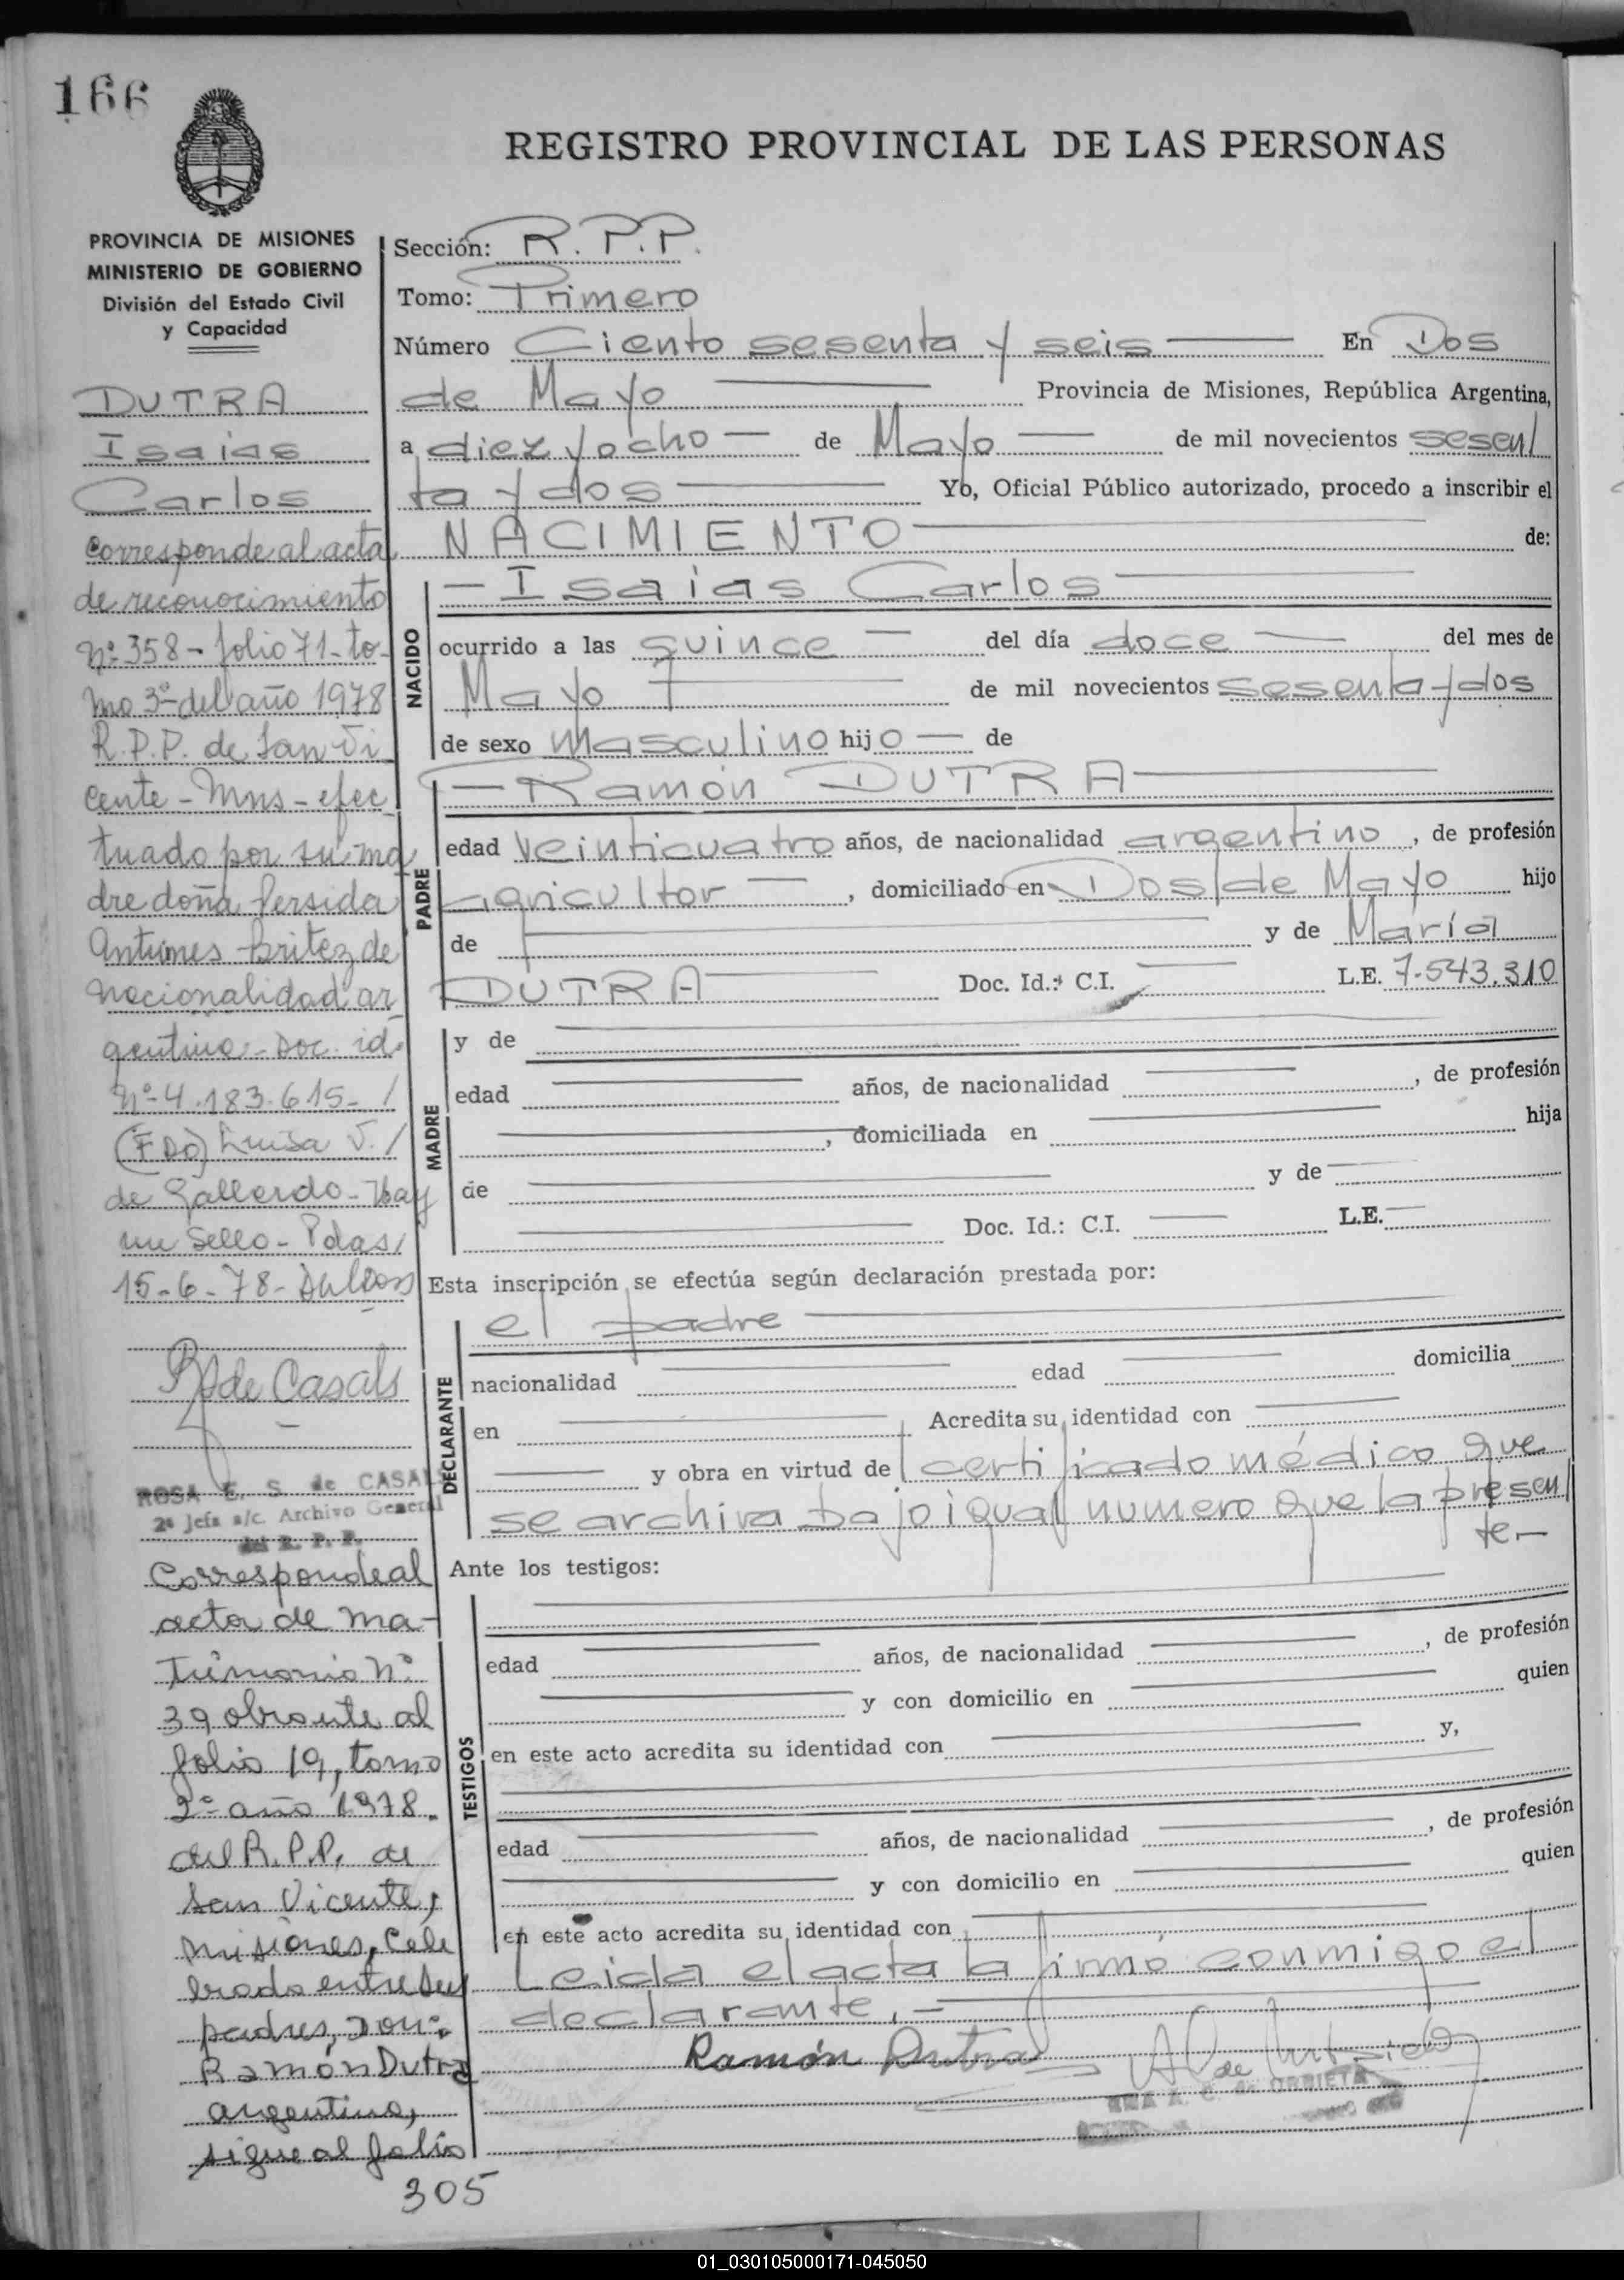 166
REGISTRO PROVINCIAL DE LAS PERSONAS
PROVINCIA DE MISIONES
MINISTERIO DE GOBIERNO
División del Estado Civil
y Capacidad
DUTRA
Isaias
Carlos
Corresponde al acta
de reconocimiento
Nº 358 - folio 71 - to-
mo 3º del año 1978
R.P.P. de San Vi
cente - Mns - efec
tuado por su ma
dre doña Persida
Antunes Britez de
nacionalidad ar
gentina - Doc. id.
Nº 4.183.615 - /
(FDO) Luisa V. /
de Gallardo - Hay
un Sello - Pdas/
15-6-78-
R de Casals
ROSA E. S. de CASALS
2ª Jefa a/c. Archivo General
del R. P. P.
Corresponde al
acta de ma-
trimonio Nº
39 obrante al
folio 19, tomo
2º año 1978.
del R.P.P. de
San Vicente,
Misiones, Cele
brado entre sus
padres, Don:
Ramón Dutra
argentino,
sigue al folio
305
Sección: R.P.P.
Tomo: Primero
Número Ciento sesenta y seis En Dos
de Mayo Provincia de Misiones, República Argentina,
a diez y ocho de Mayo de mil novecientos sesen/
ta y dos Yo, Oficial Público autorizado, procedo a inscribir el
NACIMIENTO de:
NACIDO
Isaias Carlos
ocurrido a las quince del día doce del mes de
Mayo de mil novecientos sesenta y dos
de sexo masculino hijo de
PADRE
Ramón DUTRA
edad veinticuatro años, de nacionalidad argentino, de profesión
agricultor, domiciliado en Dos de Mayo hijo
de y de María
DUTRA Doc. Id.: C.I. L.E. 7.543.310
MADRE
y de
edad años, de nacionalidad , de profesión
, domiciliada en hija
de y de
Doc. Id.: C.I. L.E.
Esta inscripción se efectúa según declaración prestada por:
DECLARANTE
el padre
nacionalidad edad domicilia
en Acredita su identidad con
y obra en virtud de certificado médico que
se archiva bajo igual numero que la presen/
te.-
Ante los testigos:
TESTIGOS
edad años, de nacionalidad , de profesión
y con domicilio en quien
en este acto acredita su identidad con y,
edad años, de nacionalidad , de profesión
y con domicilio en quien
en este acto acredita su identidad con
Leida el acta la firmó conmigo el
declarante.-
Ramón Dutra
01_030105000171-045050